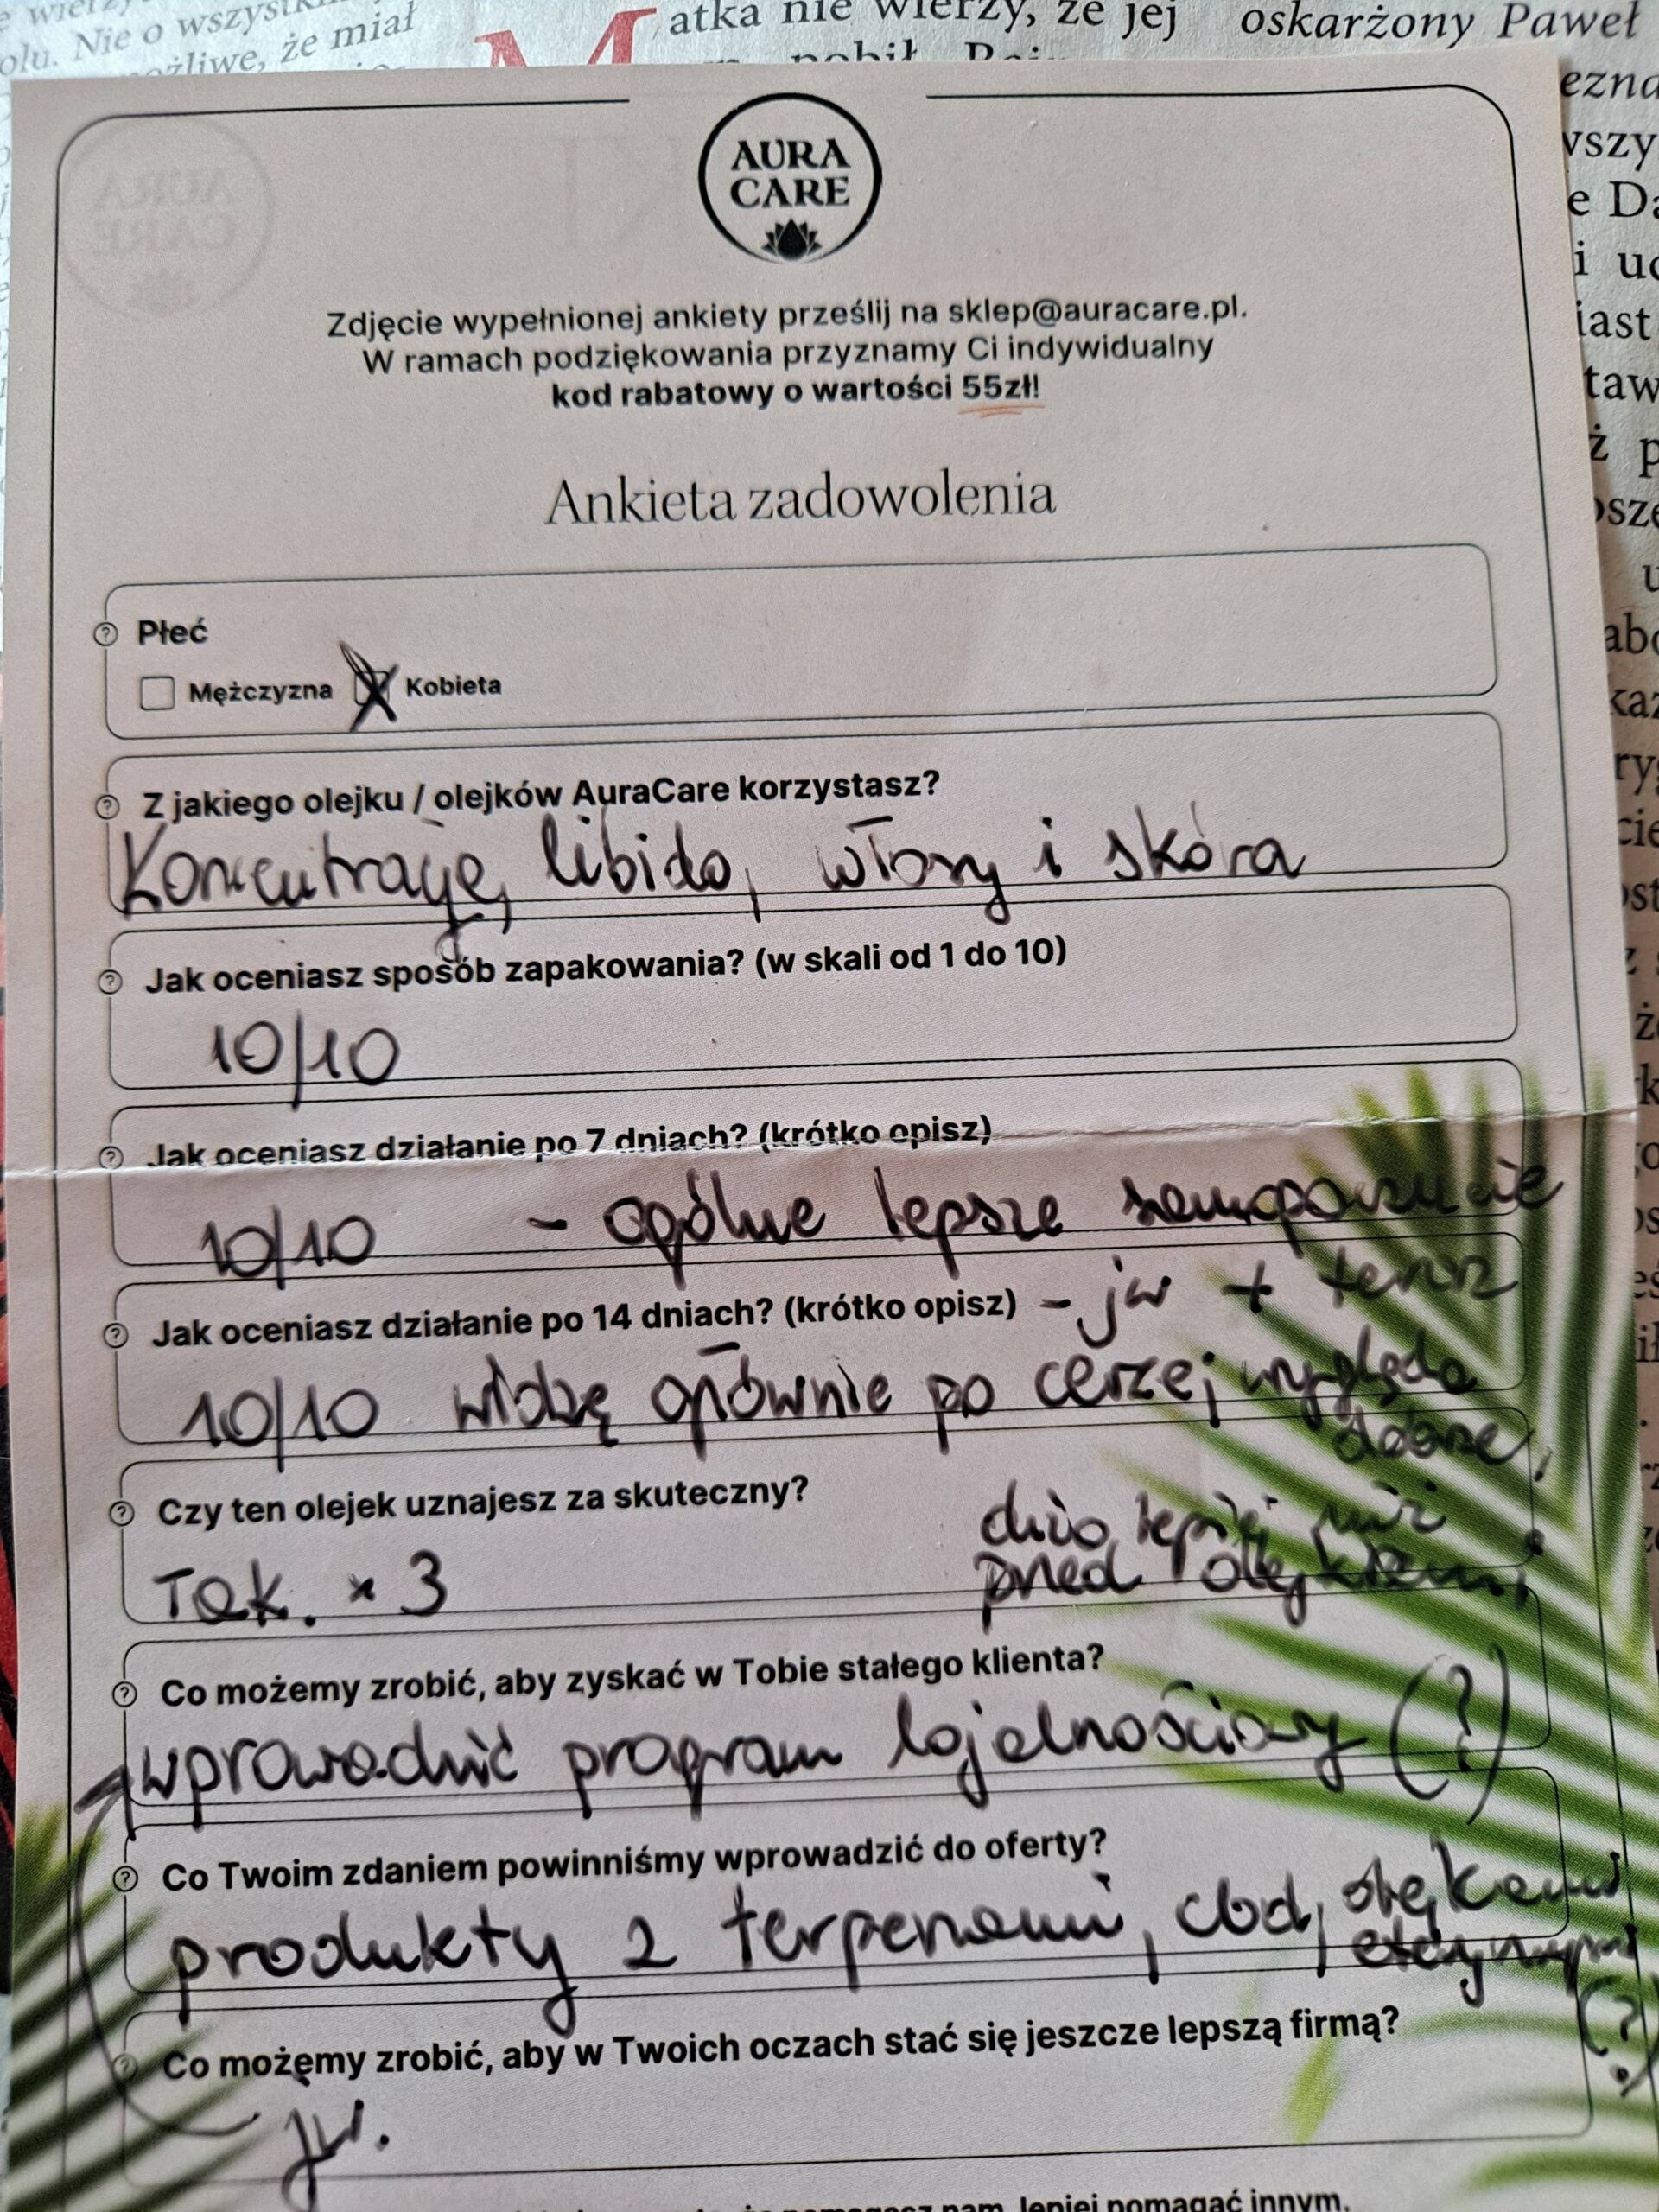 atka nie wierzy, że jej
oskarżony Paweł
olu. Nie o
że miał
AURA
CARE
Zdjęcie wypełnionej ankiety prześlij na sklep@auracare.pl.
W ramach podziękowania przyznamy Ci indywidualny
kod rabatowy o wartości 55zł!
Ankieta zadowolenia
Płeć
Mężczyzna Kobieta
Z jakiego olejku / olejków AuraCare korzystasz?
Koncentrację, libido, włosy i skóra
Jak oceniasz sposób zapakowania? (w skali od 1 do 10)
10/10
Jak oceniasz działanie po 7 dniach? (krótko opisz)
10/10 - ogólne lepsze samopoczucie
Jak oceniasz działanie po 14 dniach? (krótko opisz) - jw + teraz
10/10 widzę głównie po cerze; wygląda
dobrze,
Czy ten olejek uznajesz za skuteczny?
dużo lepiej niż
Tak. x 3 przed olejkiem;
Co możemy zrobić, aby zyskać w Tobie stałego klienta?
wprowadzić program lojalnościowy (?)
Co Twoim zdaniem powinniśmy wprowadzić do oferty?
produkty z terpenami, cbd, olejkami
eterycznymi
(?)
Co możemy zrobić, aby w Twoich oczach stać się jeszcze lepszą firmą?
jw.
nam lepiej pomagać innym.